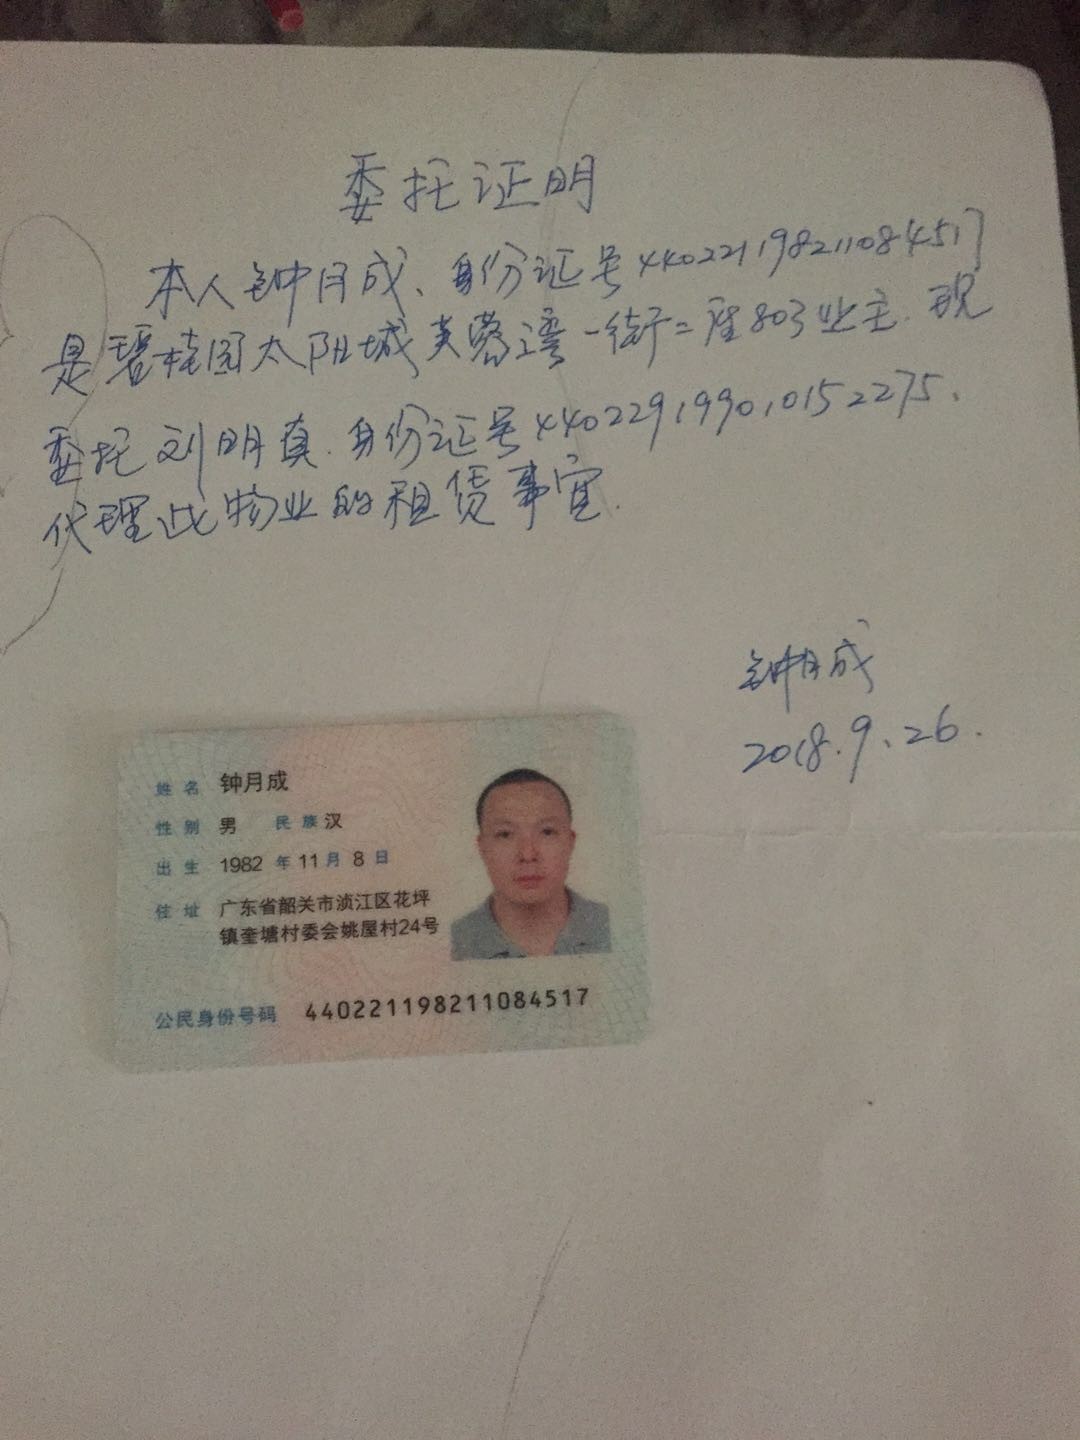 委托证明
本人钟月成、身份证号440221198211084517
是碧桂园太阳城芙蓉湾一街二座803业主.现
委托刘明真.身份证号440229199010152275、
代理此物业的租赁事宜.
钟月成
2018.9.26.
姓名 钟月成
性别 男 民族 汉
出生 1982 年 11 月 8 日
住址 广东省韶关市浈江区花坪
镇奎塘村委会姚屋村24号
公民身份号码 440221198211084517